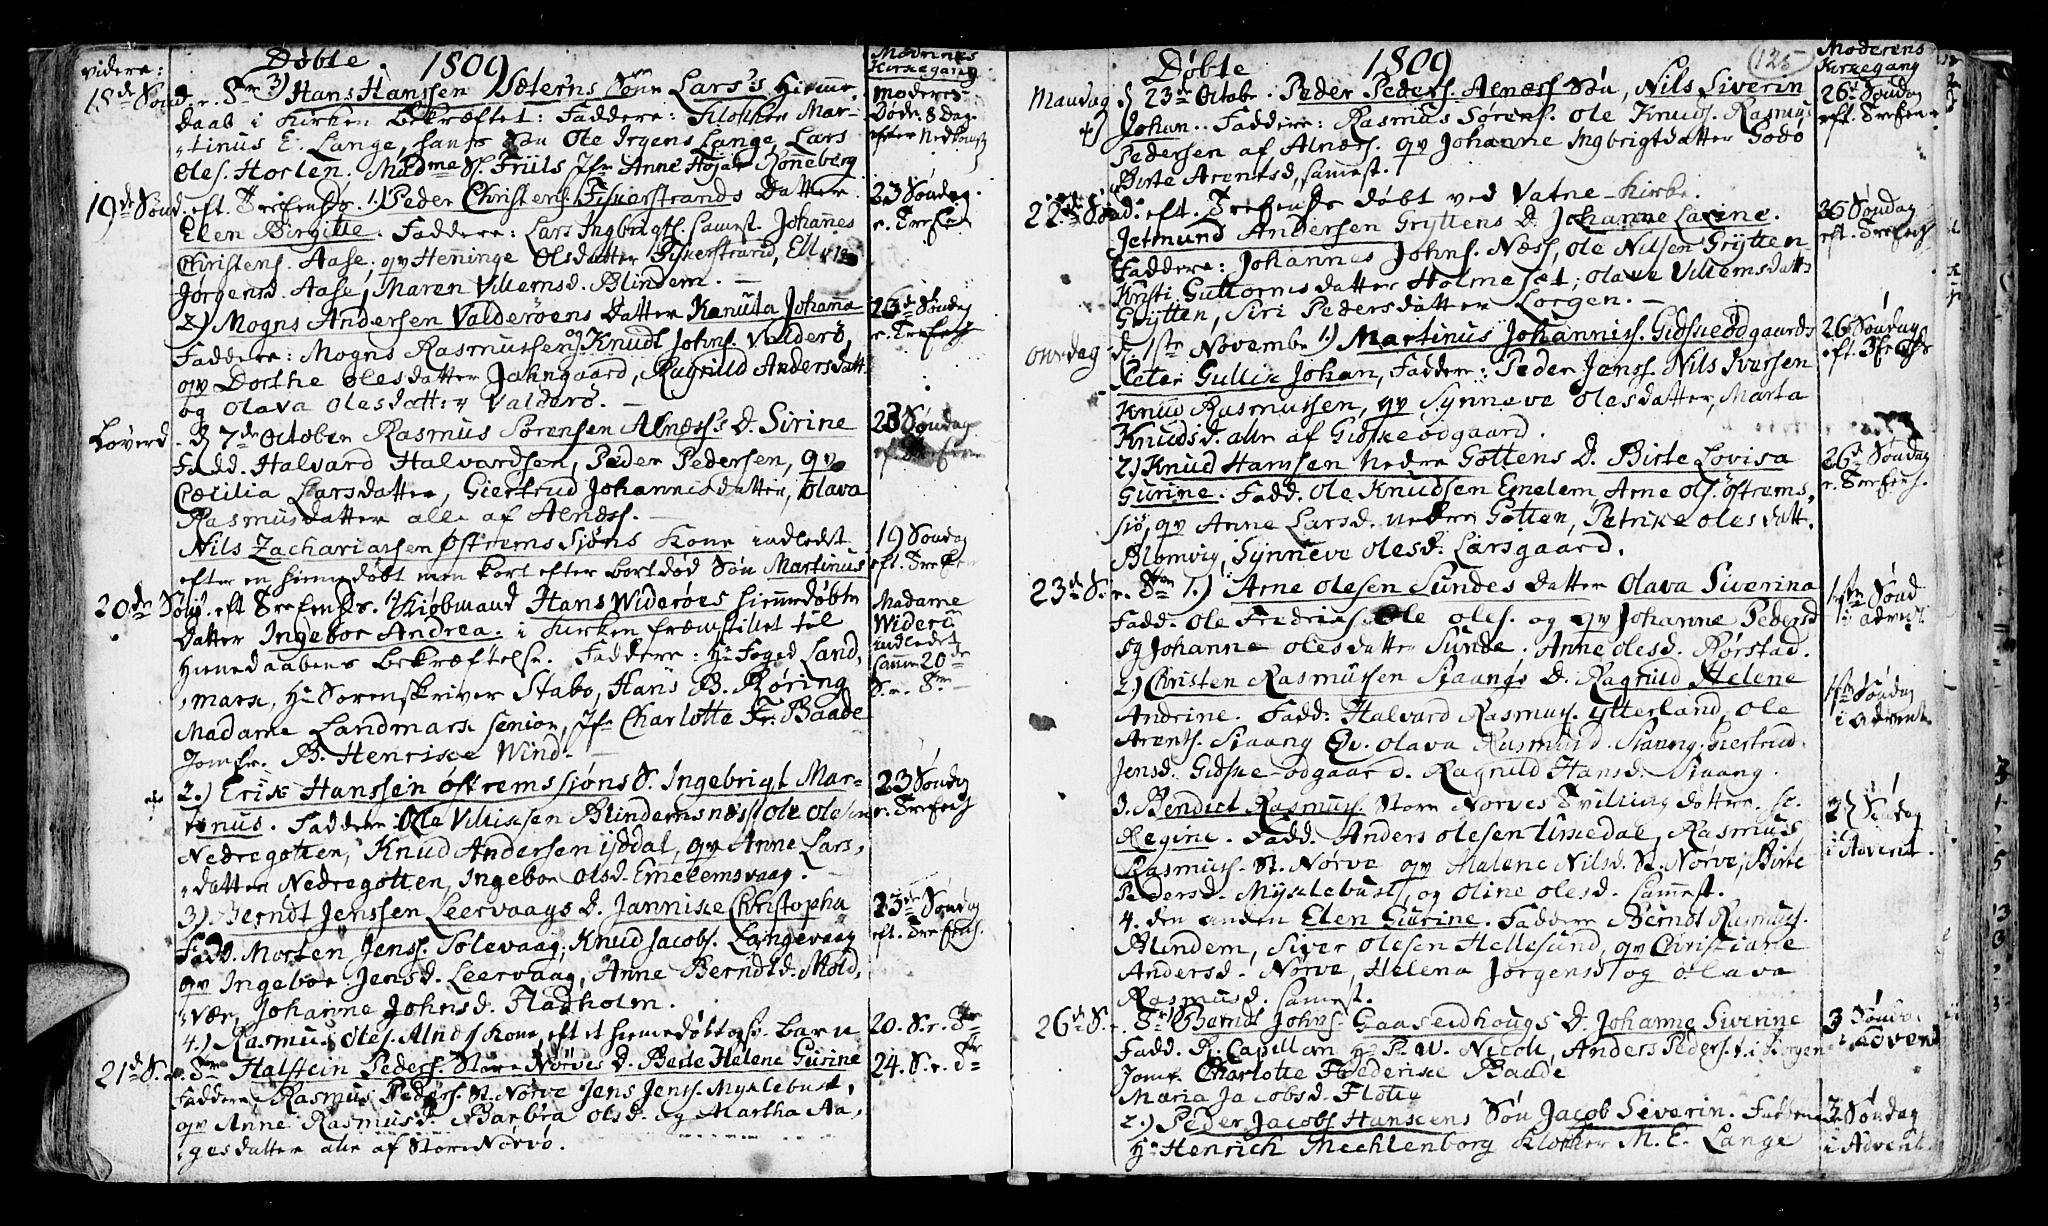 videre:
Døbte. 1809
Mødrenes
Kirkegang
18de Sønd. e. Trin 3) Hans Hanssen Sæterns Sønn Lars's Hiemme
daab i Kirken bekræftet: Faddere: Klokker Mar-
tinus E. Lange, hans Søn Ole Irgens Lange, Lars
Oles. Horlen. Madme S. Friils Jfr Anne Hojar Røneberg
moderen
Døde 8 Dag.
efter Nedkomst
19de Sønd. eft. Trefends. 1) Peder Christens. Fiskerstrands Datter
Elen Birgitte. Faddere: Lars Ingbrigts. samest. Johanes
Christens. Aase; qv Henninge Olsdatter Fiskerstrand, Ellen
Jørgensd. Aase, Maren Villemsd. Blindem. —
23 Søndag.
e. Trefol
2) Mogns Andersen Valderøens Datter Kanuta Johanna
Faddere: Mogns Rasmussen og Knud Johns. Valderø,
qv Dorthe Olesdatter Jahngaard, Ragnild Andersdatt.
og Olava Olesdatter Valderø. —
26de Søndag
e. Trefold
Løverd. d. 7de Octobr Rasmus Sørensen Alnæss's D. Sirine
Fadd. Halvard Halvardsen, Peder Pedersen, qv
Cæcilia Larsdatter, Giertrud Johannisdatter, Olava
Rasmusdatter alle af Alnæss. —
23 Søndag
ef. Trefen
Nils Zachariassen Østrems Sjøns Kone indledet
efter en hiemedøbt men kort efter bortdød Søn Martinus
19 Søndag
eft. Trefen
20de Sønd. eft Trefends. 1) Kiøbmand Hans Widerøes hiemedøbte
Datter Ingebor Andrea. i Kirken fremstillet til
Hiemedaabens bekræftelse. Faddere: Hr Foged Land,
mark, Hr Sorenskriver Stabo, Hans B. Røring
Madame Landmark senior, Jfr Charlotte Fr. Baade
Jomfr. B. Henrike Wind. —
Madame
Widerø
indledet
samme 20de
S. e. Trin
2.) Erik Hanssen Østremssjøns S. Ingebrigt Mar-
tinus. Faddere: Ole Villixsen Blindemsnæs, Ole Olesen
Nedregotten, Knud Andersen ijddal, qv Anne Lars,
datter Nedregotten, Ingebor Olsd. Emelemsvaag. —
23 Søndag
e. Trefold
3) Berndt Jenssen Leervaags D. Jannike Christopha
Fadd. Morten Jenss. Solevaag, Knud Jacobs. Langevaag
qv Ingebor Jensd. Leervaag, Anne Berndtd. Mold,
vær, Johanne Johnsd. Fladholm.
23de Søndag
eft. Trefens.
4.) Rasmus Oles. Alnds Kone, eft et hiemedøbt Barn
20. S. e. Tr
21de S. e. Trin Halstein Peders. Store Nørves D. Berte Helene Gurine
Faddere Rasmus Peders. St. Nørve Jens Jenss. Myklebust,
qv Anne Rasmusd. Barbra Olsd. og Martha Aa,
gesdatter alle af Store Nørvø.
24. S. e. Tr
Døbte 1809
125
Moderens
Kirkegang
Mandag d. 23de Octobr. Peder Peders. Alnæss Søn, Nils Siverin
Johan. Faddere: Rasmus Sørens. Ole Knuds. Rasmus
Pedersen af Alnæss. qv Johanne Ingbrigtdatter Godø
Birte Arentsd, samest.
26de Søndag
eft. Trefen
22de Sønd. eft. Trefends døbt ved Vatne-Kirke.
Jetmund Andersen Gryttens D. Johanne Larine.
Faddere: Johannes Johns. Næss, Ole Nilsen Grytten
Kristi Guttormsdatter Holmeset; Olave Villemsdatt.
Grytten, Siri Pedersdatter Lorgen. —
26 Søndag
eft. Trefens
onsdag d. 1ste Novembr 1.) Martinus Johanniss. Gidskeødgaards
Peter Gullik Johan, Faddere: Peder Jenss. Nils Iversen
Knud Rasmussen, qv Synneve Olesdatter, Marta
Knudsd. alle af Gidskeødgaard.
26 Søndag
2.) Knud Hanssen Nedre Gottens D. Birte Lovisa
Gurine. Fadd. Ole Knudsen Emelem, Arne Ols. Østrems,
siø, qv Anne Larsd. nedre Gotten, Petrike Olesdatt.
Blomvig, Synneve Olesd. Larsgaard.
26de Søndag
e. Trefens.
23de S. e. Trin 1.) Arne Olesen Sundes Datter Olava Siverina
Fadd. Ole Fredriks. Ole Oles. og qv Johanne Pedersd
og Johanne Olesdatter Sunde. Anne Olesd. Rørstad.
1ste Sønd
i advent
2.) Christen Rasmussen Slaangs D. Ragnild Helene
Andrine. Fadd: Halvard Rasmuss. Ytterland, Ole
Arents. Slaang Qv. Olava Rasmusd. Slaang. Giertrud
Jensd. Gidske-odgaard. Ragnild Hansd. Slaang.
1ste Søndag
i advent
3. Bendict Rasmuss. Store Nørves Tvilling dattre. sc.
Regine. Fadd. Anders Olesen Umedal, Rasmus
Rasmuss. St. Nørve qv Malene Nilsd. St. Nørve, Birte
Pedersd. Myklebust, og Oline Olesd. samest.
2d Søndag
i Advent.
4. den anden Elen Gurine. Faddere Berndt Rasmus.
Blindem, Siver Olesen Hellesund, qv Christiane
Andersd. Nørve, Helena Jørgensd og Olava
Rasmusd. samest.
26de S. e. Trin Bernt Johns. Gaaseidhougs D. Johanne Siverine
Fadd. R. Capellan Hr P. W. Nicol, Anders Peders.
Jomf. Charlotte Frederike Baade
Maria Jacobsd. Flote
3 Søndag
i Advent
2.) Peder Jacobs. Hanskens Søn Jacob Siverin. Faddere
Hr Henrich Mechlenborg Klokker M. E. Lange
3. Søndag
i Advent